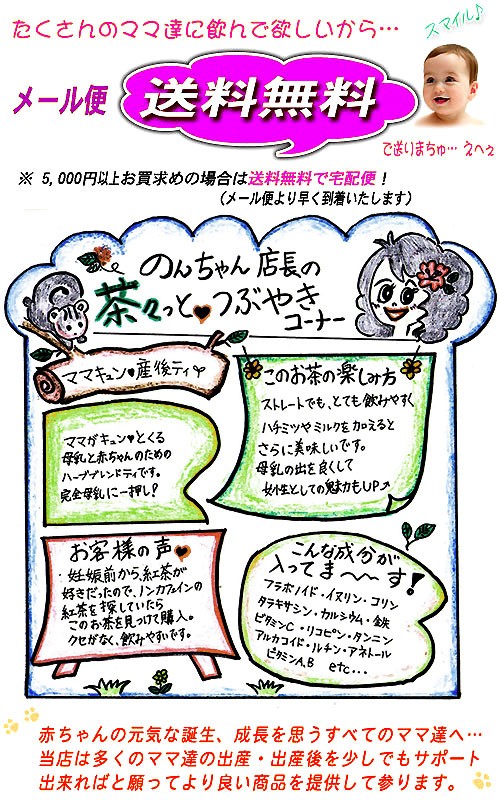 たくさんのママ達に飲んで欲しいから…
スマイル♪
メール便 送料無料
で送りまちゅ… えへぇ
※ 5,000円以上お買求めの場合は送料無料で宅配便！
（メール便より早く到着いたします）
のんちゃん店長の
茶々っと♥つぶやき
コーナー
ママキュン♥産後ティー
ママがキュン♥とくる
母乳と赤ちゃんのための
ハーブブレンドティです。
完全母乳に一押し!
このお茶の楽しみ方
ストレートでも、とても飲みやすく
ハチミツやミルクを加えると
さらに美味しいです。
母乳の出を良くして
女性としての魅力もUP↗
お客様の声♥
・妊娠前から、紅茶が
好きだったので、ノンカフェインの
紅茶を探していたら
このお茶を見つけて購入。
クセがなく、飲みやすいです。
こんな成分が
入ってま〜〜す!
フラボノイド・イヌリン・コリン
タラキサシン・カルシウム・鉄
ビタミンC・リコピン・タンニン
アルカロイド・ルチン・アネトール
ビタミンA,B etc...
赤ちゃんの元気な誕生、成長を思うすべてのママ達へ…
当店は多くのママ達の出産・出産後を少しでもサポート
出来ればと願ってより良い商品を提供して参ります。